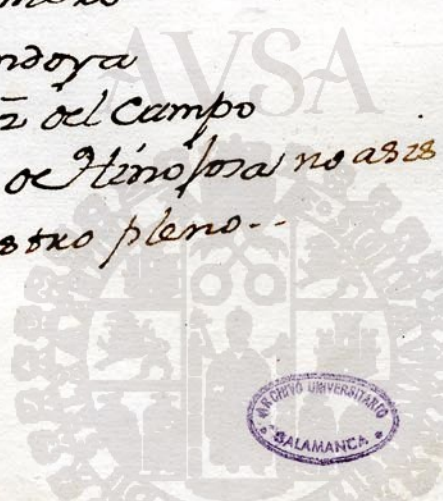 AVSA
ndoya
z̄ del Campo
de Hinojosa no asis
stro pleno..
ARCHIVO UNIVERSITARIO
SALAMANCA